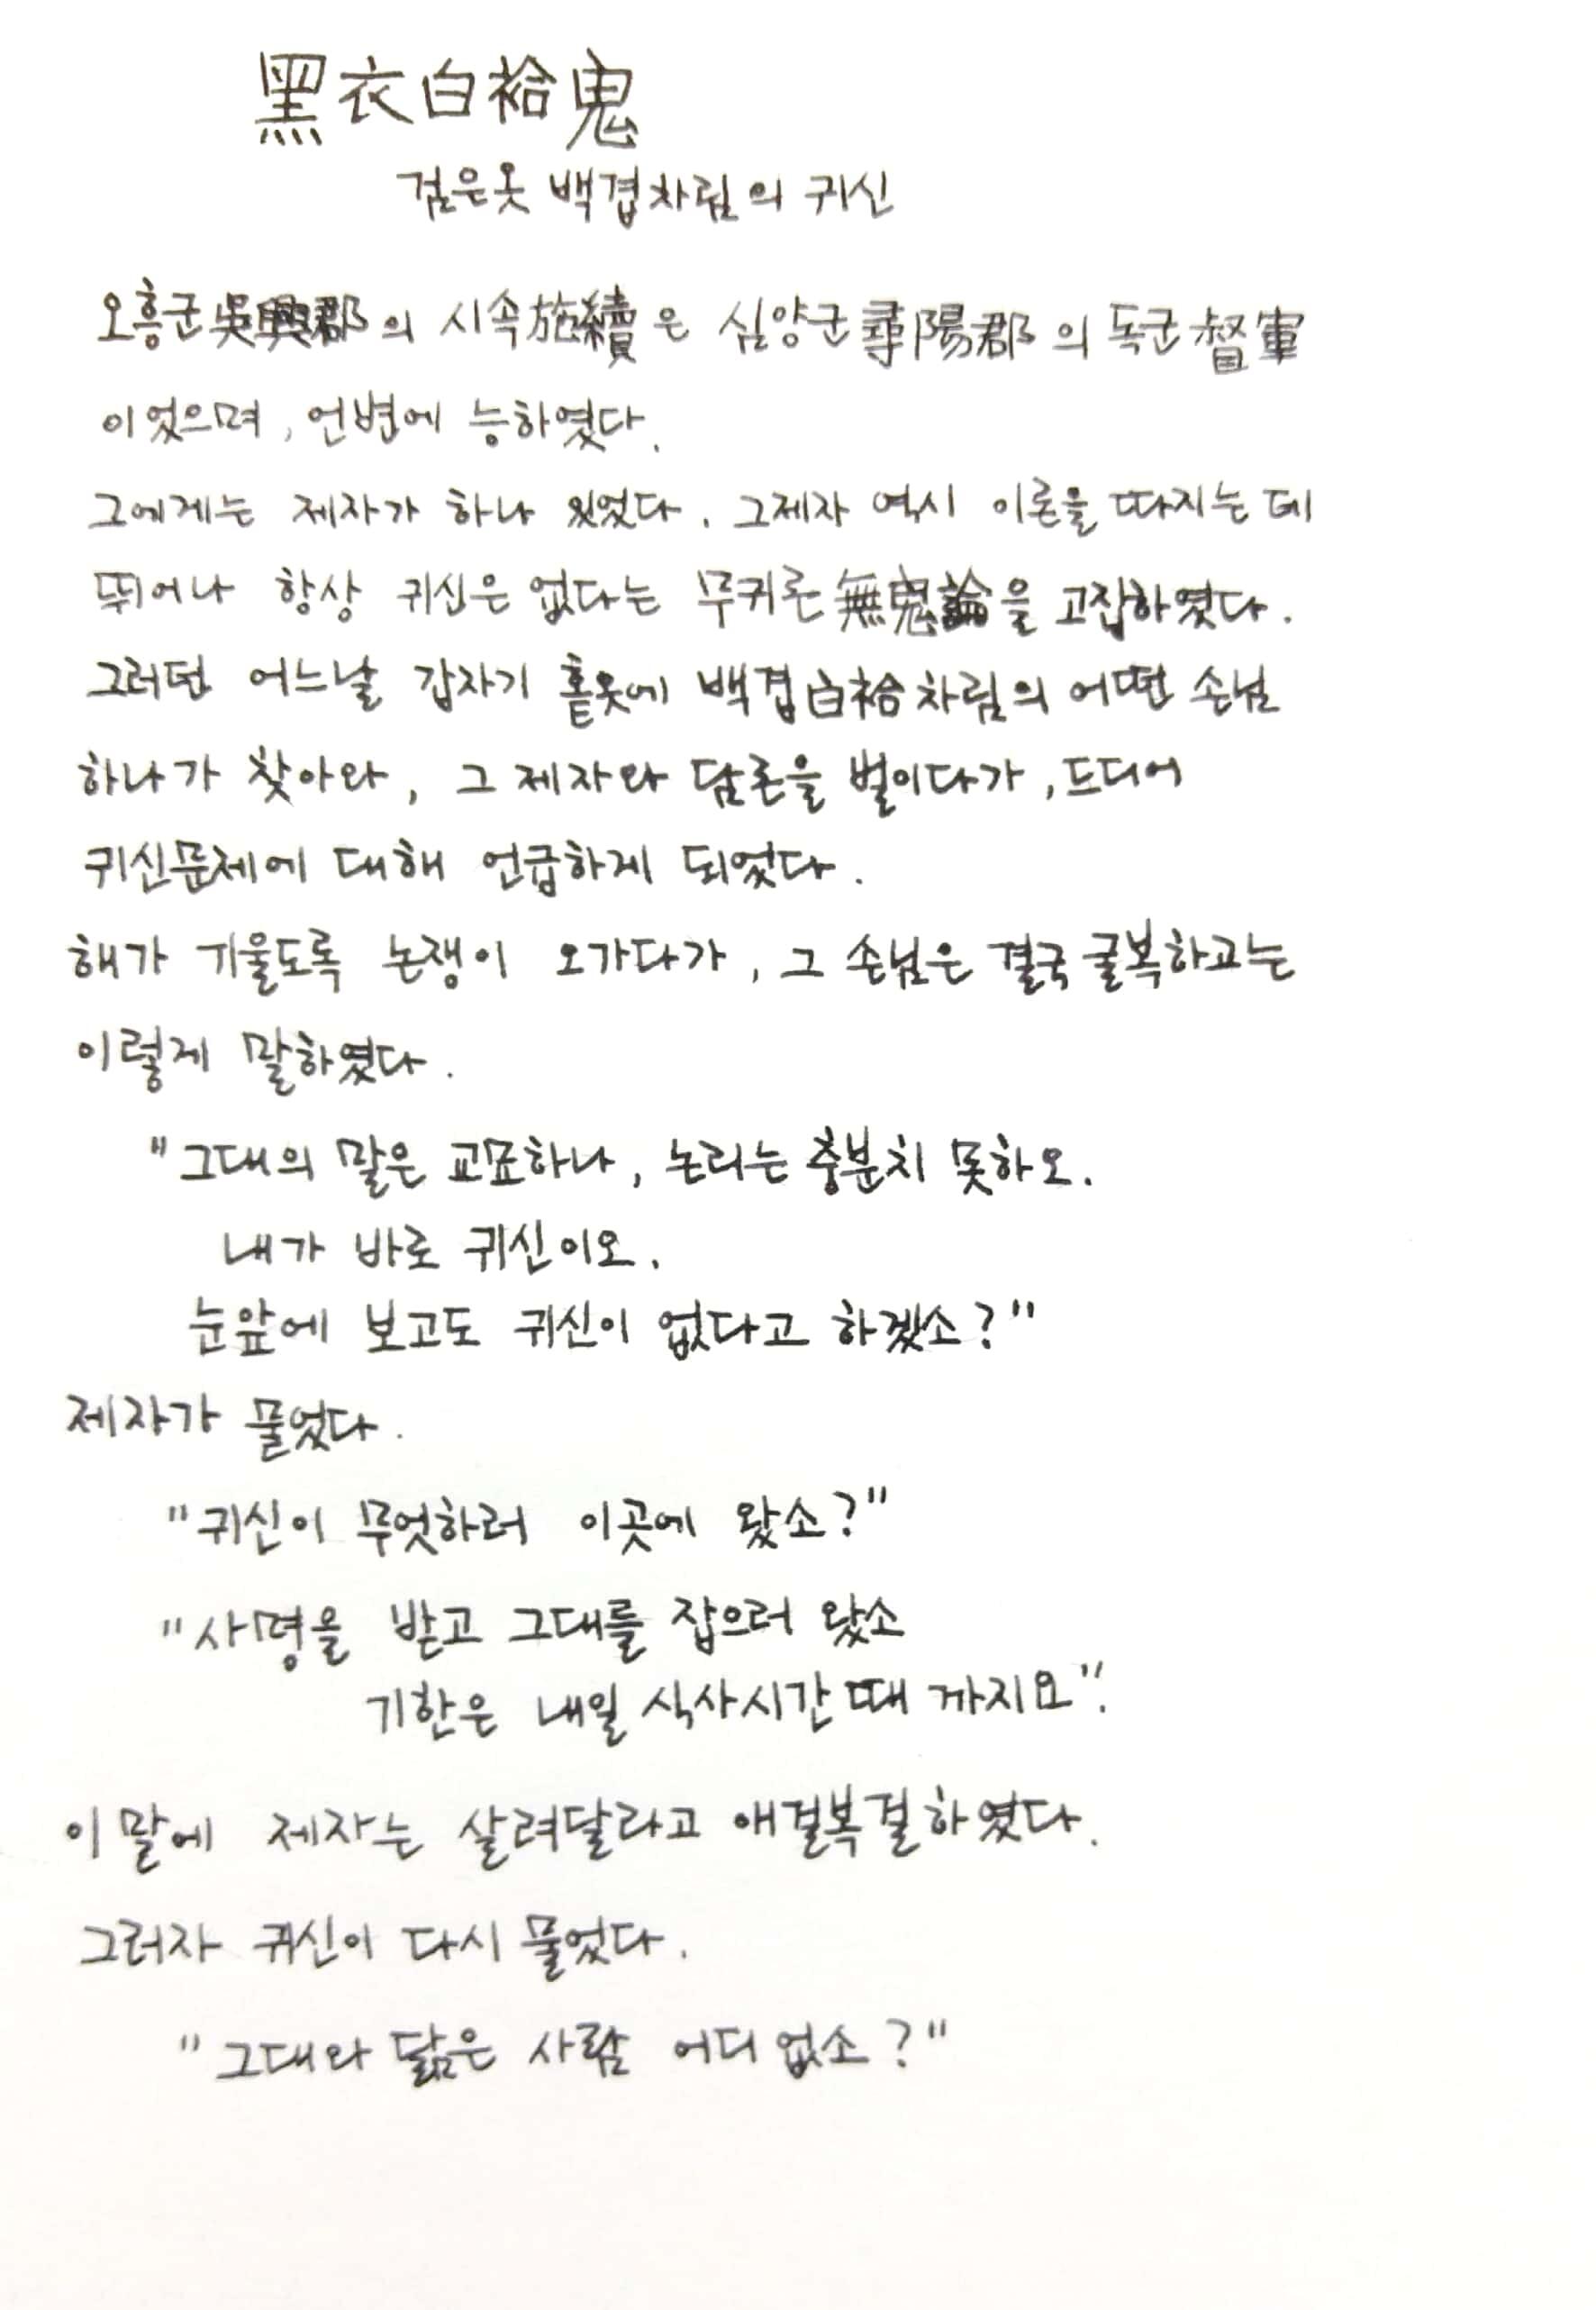 黑衣白袷鬼
검은옷 백겹차림의 귀신
오흥군吳興郡의 시속施續은 심양군尋陽郡의 독군督軍
이었으며, 언변에 능하였다.
그에게는 제자가 하나 있었다. 그제자 역시 이론을 따지는 데
뛰어나 항상 귀신은 없다는 무귀론無鬼論을 고집하였다.
그러던 어느날 갑자기 홑옷에 백겹白袷차림의 어떤 손님
하나가 찾아와, 그 제자와 담론을 벌이다가, 드디어
귀신문제에 대해 언급하게 되었다.
해가 기울도록 논쟁이 오가다가, 그 손님은 결국 굴복하고는
이렇게 말하였다.
"그대의 말은 교묘하나, 논리는 충분치 못하오.
내가 바로 귀신이오.
눈앞에 보고도 귀신이 없다고 하겠소?"
제자가 물었다.
"귀신이 무엇하러 이곳에 왔소?"
"사명을 받고 그대를 잡으러 왔소
기한은 내일 식사시간 때 까지요".
이 말에 제자는 살려달라고 애걸복걸하였다.
그러자 귀신이 다시 물었다.
"그대와 닮은 사람 어디 없소?"